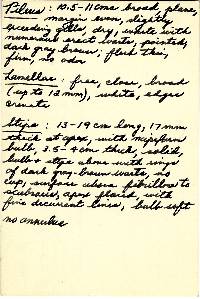 Pileus : 10.5-11cms broad, plane,
margin even, slightly
exceeding gills, dry, white with
numerous erect warts, pointed,
dark gray brown; flesh thin,
firm, no odor
Lamellae : free, close, broad
(up to 12 mm), white, edges
crenate
Stipe : 13-19 cm long, 17mm
thick at apex, with napiform
bulb, 3.5-4cm thick, solid,
bulb & stipe above with rings
of dark gray-brown warts, no
cup, surface above fibrillose to
scabrous, apex placid, with
fine decurrent lines, bulb soft
no annulus